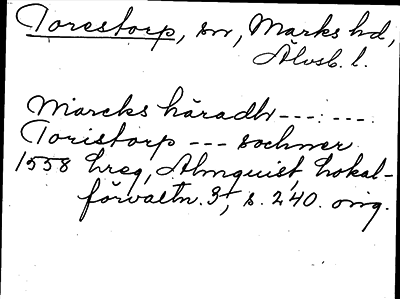 Torestorp, sn, Marks hd,
Älvsb. l.
Marcks häradh ---:---.
Toristorp --- sochner
1558 hreg, Almquist, Lokal-
förvaltn. 3, s. 240. orig.